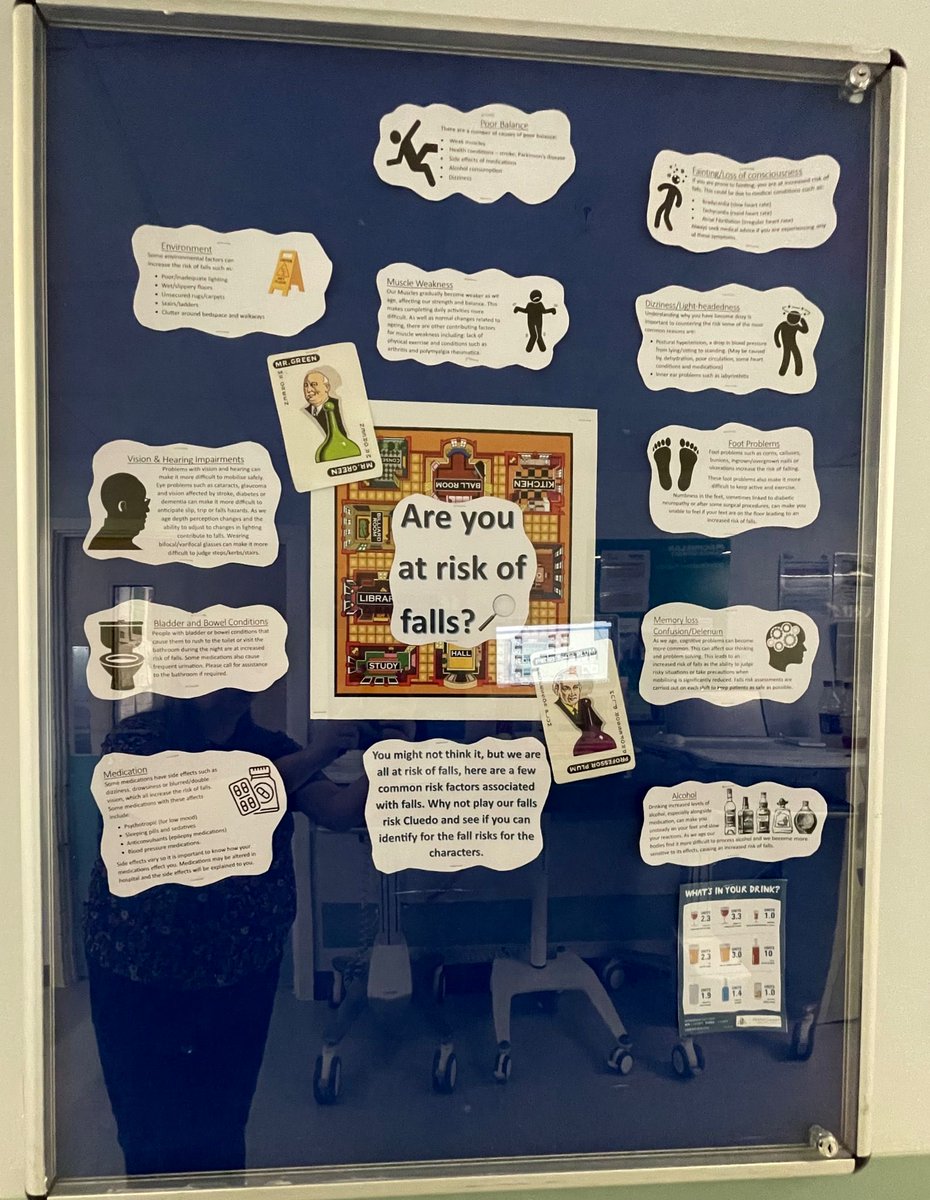 Poor Balance
There are a number of causes of poor balance:
• Weak muscles
• Health conditions – stroke, Parkinson's disease
• Side effects of medications
• Alcohol consumption
• Dizziness
Fainting/Loss of consciousness
If you are prone to fainting, you are at increased risk of
falls. This could be due to medical conditions such as:
• Bradycardia (slow heart rate)
• Tachycardia (rapid heart rate)
• Atrial Fibrillation (irregular heart rate)
Always seek medical advice if you are experiencing any
of these symptoms.
Environment
Some environmental factors can
increase the risk of falls such as:
• Poor/inadequate lighting
• Wet/slippery floors
• Unsecured rugs/carpets
• Stairs/ladders
• Clutter around bedspace and walkways
Muscle Weakness
Our Muscles gradually become weaker as we
age, affecting our strength and balance. This
makes completing daily activities more
difficult. As well as normal changes related to
ageing, there are other contributing factors
for muscle weakness including: lack of
physical exercise and conditions such as
arthritis and polymyalgia rheumatica.
Dizziness/Light-headedness
Understanding why you have become dizzy is
important to countering the risk some of the most
common reasons are:
• Postural hypotension, a drop in blood pressure
from lying/sitting to standing. (May be caused
by, dehydration, poor circulation, some heart
conditions and medications)
• Inner ear problems such as labyrinthitis
MR.GREEN
MR.GREEN
Vision & Hearing Impairments
Problems with vision and hearing can
make it more difficult to mobilise safely.
Eye problems such as cataracts, glaucoma
and vision affected by stroke, diabetes or
dementia can make it more difficult to
anticipate slip, trip or falls hazards. As we
age depth perception changes and the
ability to adjust to changes in lighting
contribute to falls. Wearing
bifocal/varifocal glasses can make it more
difficult to judge steps/kerbs/stairs.
Foot Problems
Foot problems such as corns, calluses,
bunions, ingrown/overgrown nails or
ulcerations increase the risk of falling.
These foot problems also make it more
difficult to keep active and exercise.
Numbness in the feet, sometimes linked to diabetic
neuropathy or after some surgical procedures, can make you
unable to feel if your feet are on the floor leading to an
increased risk of falls.
BALL ROOM
KITCHEN
BILLIARD
ROOM
STUDY
HALL
Are you
at risk of
falls?
Bladder and Bowel Conditions
People with bladder or bowel conditions that
cause them to rush to the toilet or visit the
bathroom during the night are at increased
risk of falls. Some medications also cause
frequent urination. Please call for assistance
to the bathroom if required.
Memory loss
Confusion/Delerium
As we age, cognitive problems can become
more common. This can affect our thinking
and problem solving. This leads to an
increased risk of falls as the ability to judge
risky situations or take precautions when
mobilising is significantly reduced. Falls risk assessments are
carried out on each shift to keep patients as safe as possible.
PROFESSOR PLUM
Medication
Some medications have side effects such as
dizziness, drowsiness or blurred/double
vision, which all increase the risk of falls.
Some medications with these affects
include:
• Psychotropic (for low mood)
• Sleeping pills and sedatives
• Anticonvulsants (epilepsy medications)
• Blood pressure medications.
Side effects vary so it is important to know how your
medications effect you. Medications may be altered in
hospital and the side effects will be explained to you.
You might not think it, but we are
all at risk of falls, here are a few
common risk factors associated
with falls. Why not play our falls
risk Cluedo and see if you can
identify for the fall risks for the
characters.
Alcohol
Drinking increased levels of
alcohol, especially alongside
medication, can make you
unsteady on your feet and slow
your reactions. As we age our
bodies find it more difficult to process alcohol and we become more
sensitive to its effects, causing an increased risk of falls.
WHAT'S IN YOUR DRINK?
UNITS 2.3
UNITS 3.3
UNITS 1.0
UNITS 2.3
UNITS 3.0
UNITS 10
UNITS 1.9
UNITS 1.4
UNITS 1.0